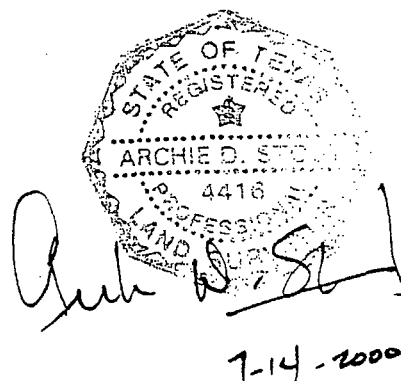 STATE OF TEXAS
REGISTERED
ARCHIE D.
4416
PROFESSIONAL
LAND
7-14-2000